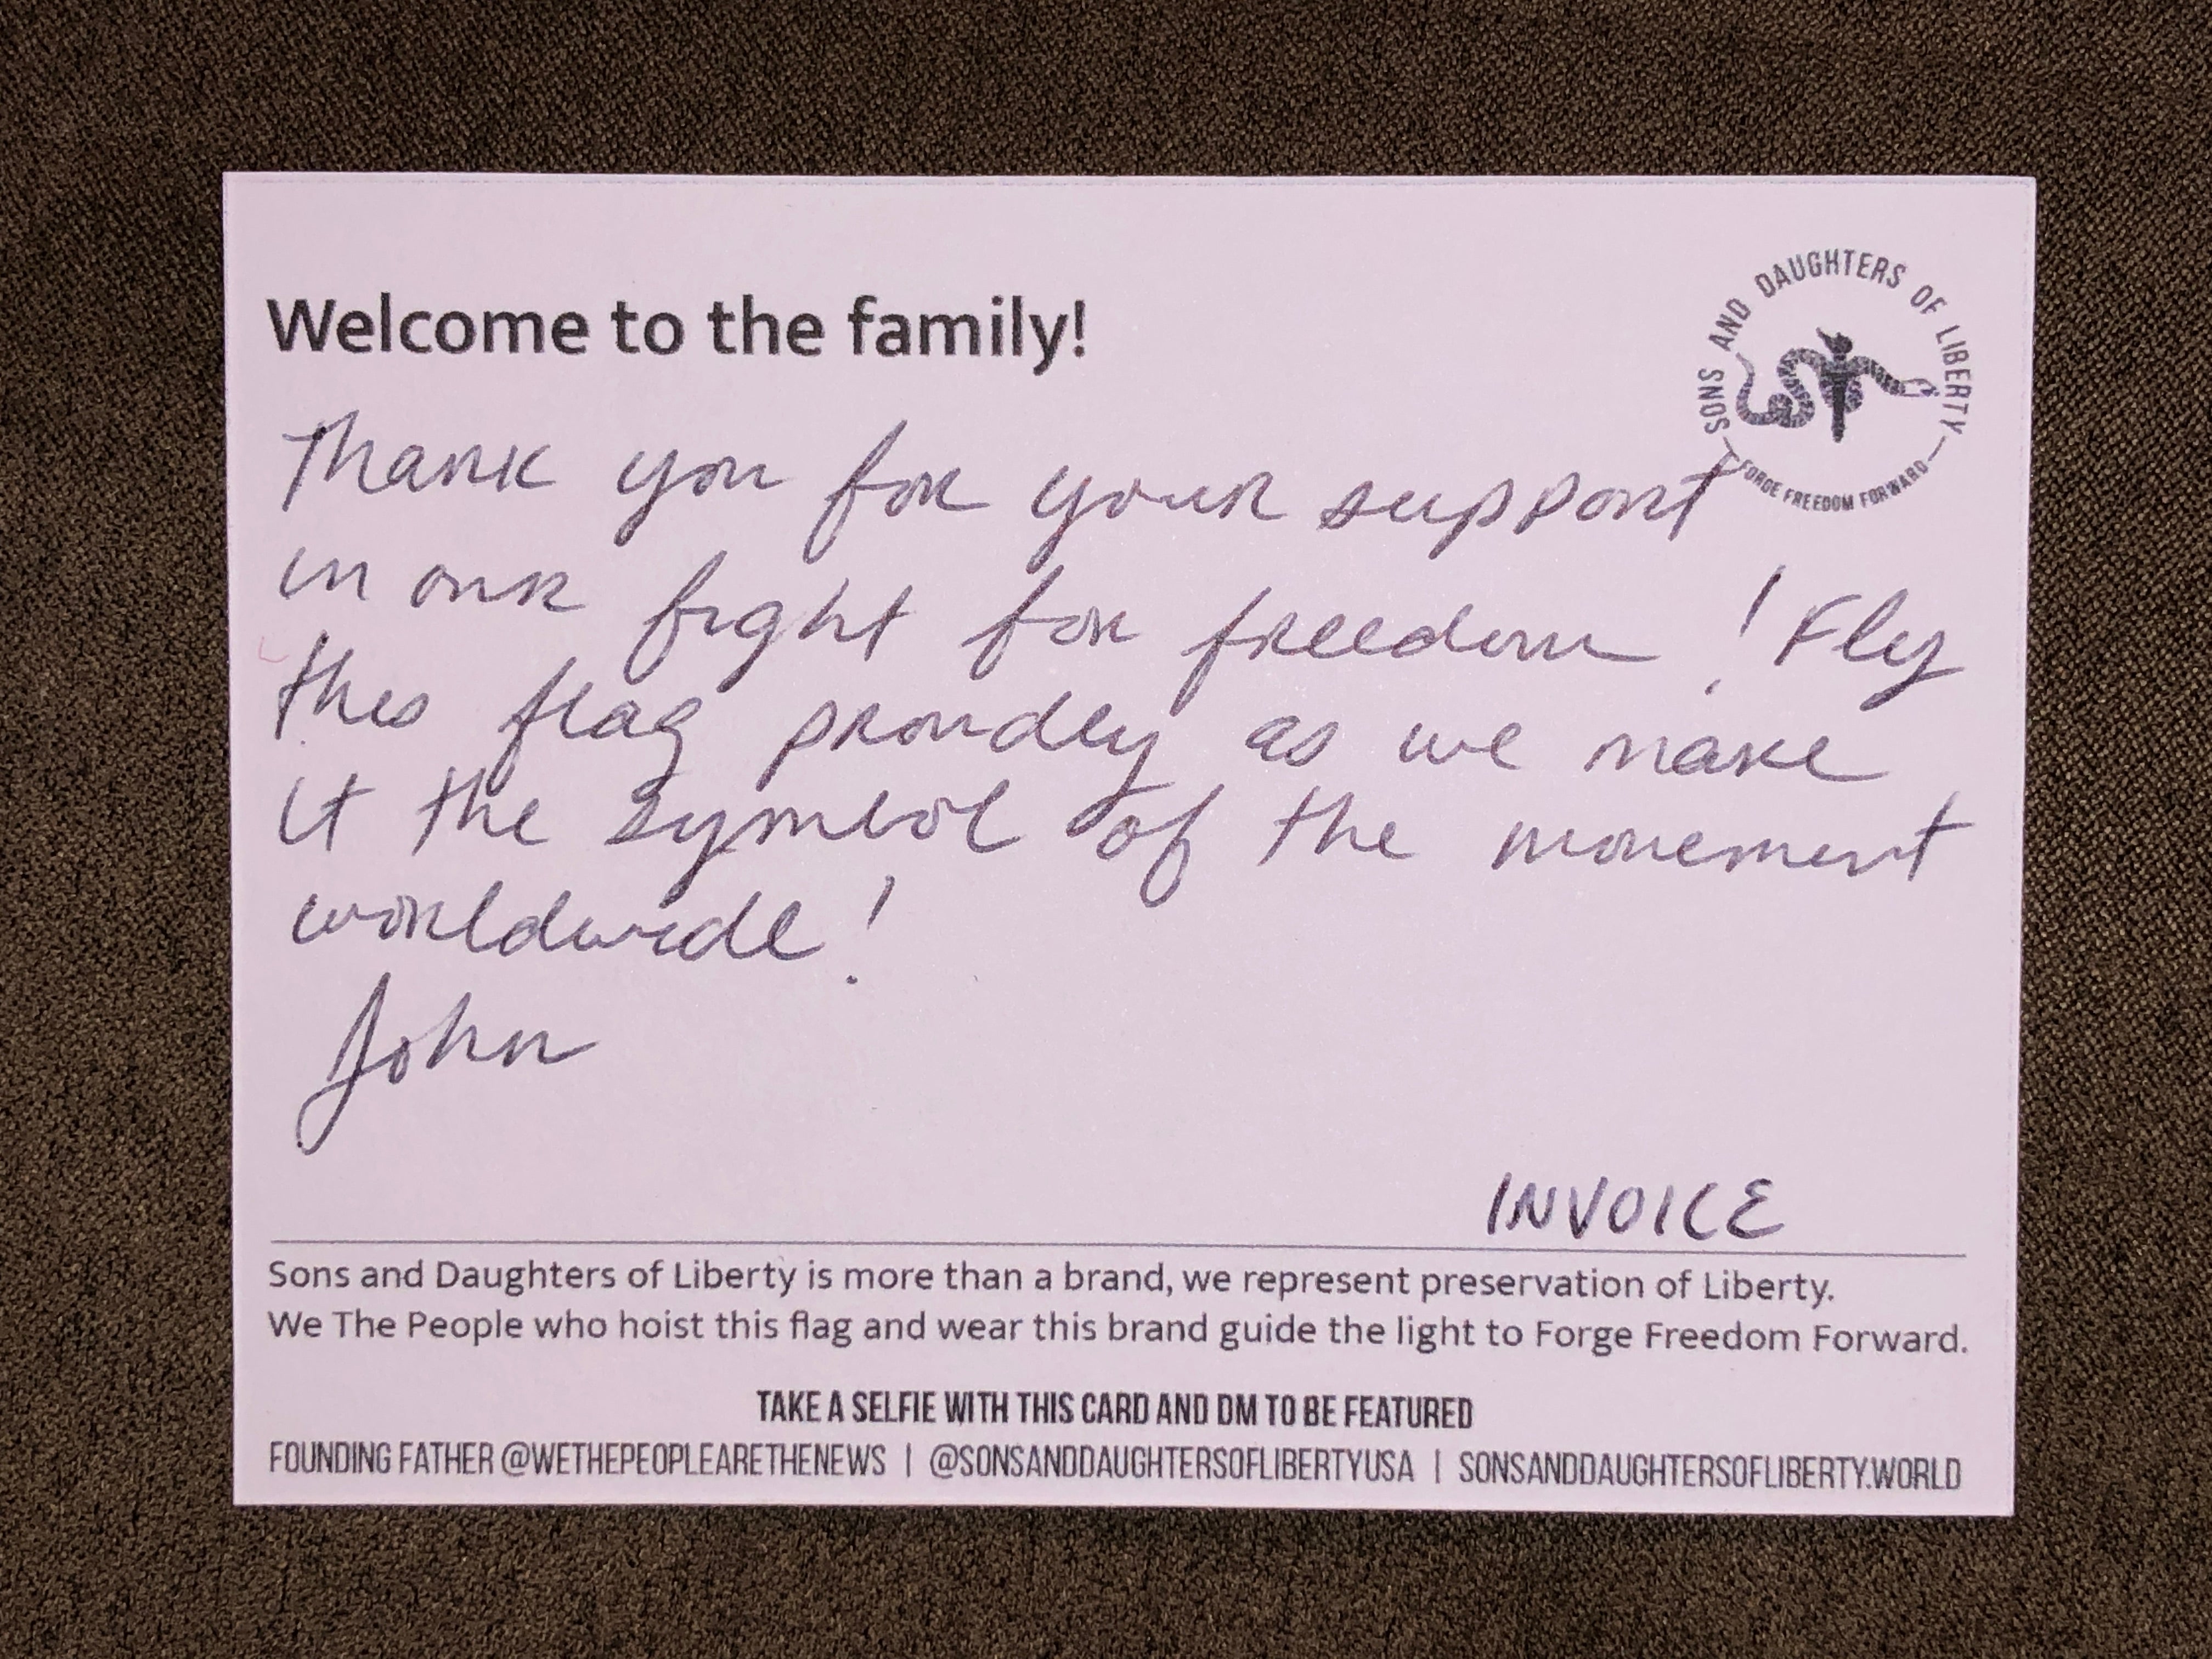 Welcome to the family!
SONS AND DAUGHTERS OF LIBERTY
FORGE FREEDOM FORWARD
Thank you for your support
in our fight for freedom! Fly
this flag proudly as we make
it the symbol of the movement
worldwide!
John
INVOICE
Sons and Daughters of Liberty is more than a brand, we represent preservation of Liberty.
We The People who hoist this flag and wear this brand guide the light to Forge Freedom Forward.
TAKE A SELFIE WITH THIS CARD AND DM TO BE FEATURED
FOUNDING FATHER @WETHEPEOPLEARETHENEWS | @SONSANDDAUGHTERSOFLIBERTYUSA | SONSANDDAUGHTERSOFLIBERTY.WORLD